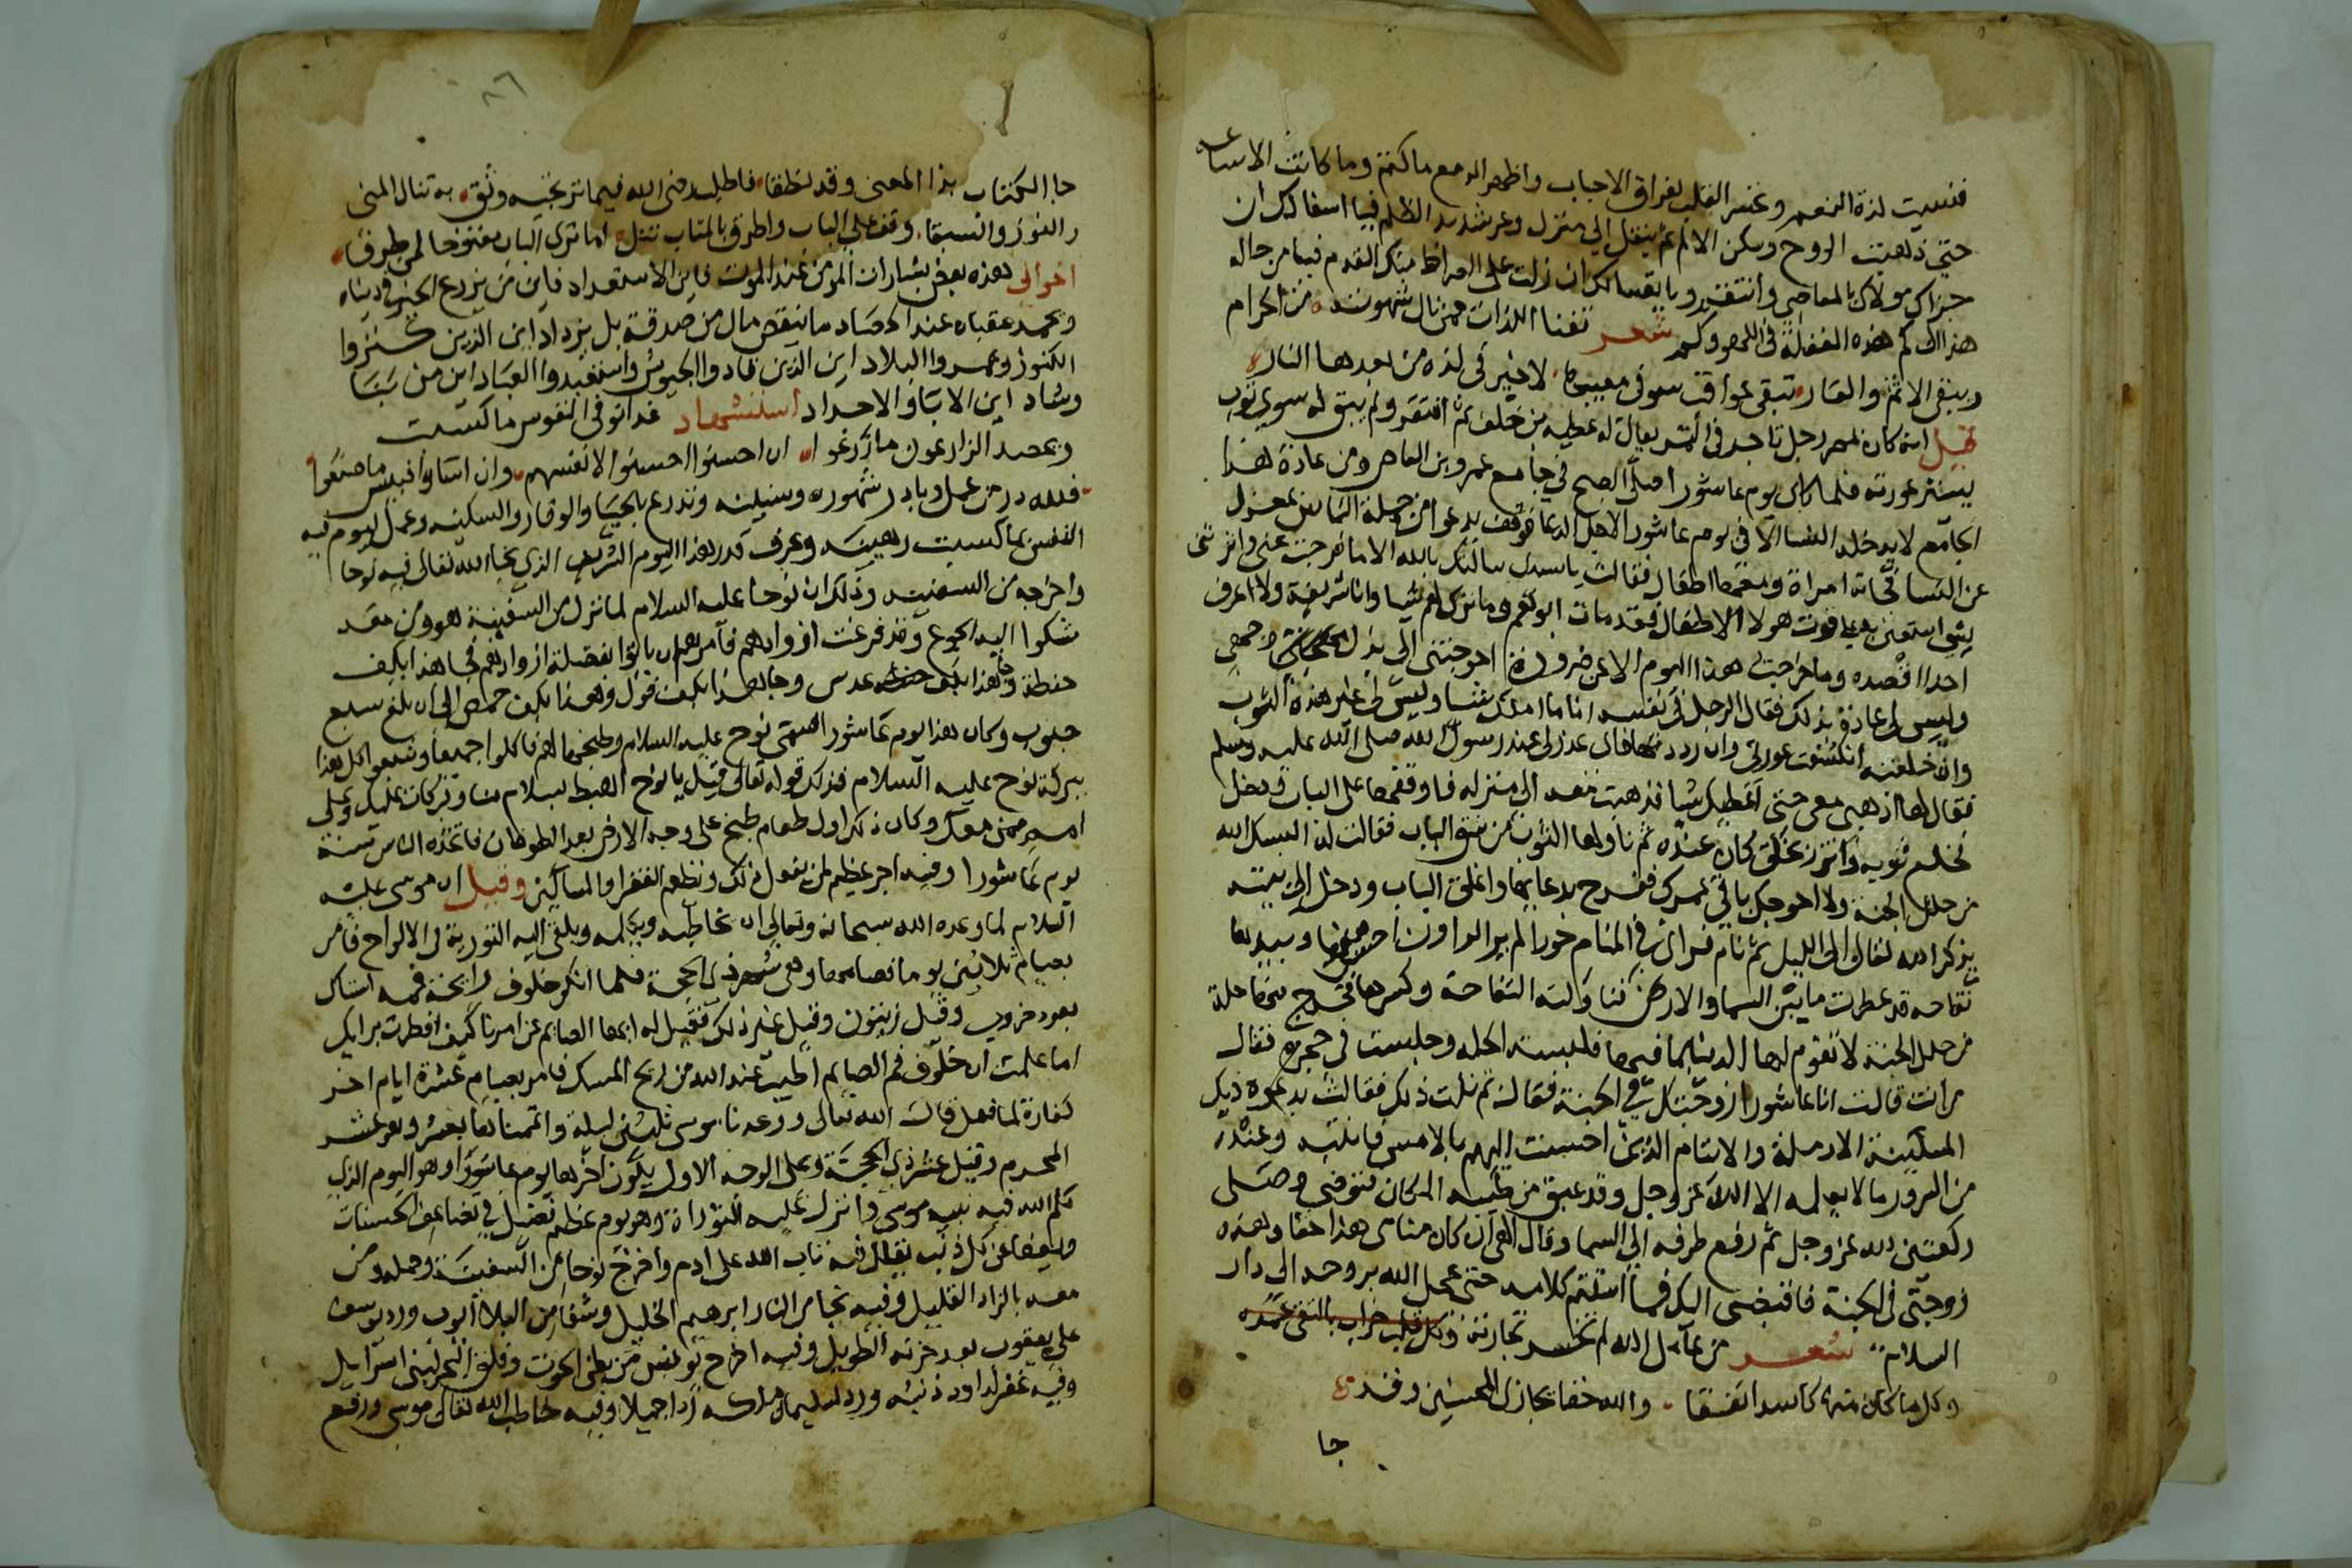 فنسيت لذة النعيم وغير القلب لفراق الاحباب واظهر الدمع ما كتم وما كانت الا ساعه
حتى ذهبت الروح وسكن الالم ثم ينقل الى منزل وعر شديد الظلم فيا اسفا لك ان
جزاك مولاك بالمعاصي وانتقم ويا لك ان زلت على الصراط منك القدم فيا من حاله
هذاك كم هذه الغفلة في اللهو وكم شعر تفنا اللذات ممن نال شهوته من الحرام
ويبقى الاثم والعار تبقى عواقب سوء في مغبتها لا خير في لذة من بعدها النار
قيل انه كان بمصر رجل تاجر في التمر يقال له عطيه بن خلف ثم افتقر ولم يبق له سوى ثوب
يستر عورته فلما كان يوم عاشورا صلى الصبح في جامع عمرو بن العاص ومن عادة هذا
الجامع لا يدخله النسا الا في يوم عاشورا لاجل الدعا فوقف يدعو من جملة الناس بمعزل
عن النسا فجاته امراة ومعها اطفال فقالت يا سيدي سالتك بالله الا ما فرجت عني واثرتني
بشي استعين به على قوت هولا الاطفال فقد مات ابوهم وما ترك لهم شيا وانا شريفة ولا اعرف
احدا اقصده وما خرجت في هذا اليوم الا عن ضرورة احوجتني الى بذل وجهي
وليس لي عادة بذلك فقال الرجل في نفسه انا ما املك شيا وليس لي غير هذه الثوب
وان خلعته انكشفت عورتي وان رددتها فاي عذر لي عند رسول الله صلى الله عليه وسلم
فقال لها اذهبي معي حتى اعطيك شيا فذهبت معه الى منزله فاوقفها على الباب ودخل
خلع ثوبه واتزر بخلق كان عنده ثم ناولها الثوب من شق الباب فقالت له البسك الله
من حلل الجنة ولا احوجك باقي عمرك ففرح بدعايها واغلق الباب ودخل الى بيته
يذكر الله تعالى الى الليل ثم نام فراى في المنام حورا لم ير الراون احسن منها وبيدها
تفاحه قد عطرت ما بين السما والارض فناولته التفاحة وكسرها فخرج منها حلة
من حلل الجنة لا تقوم لها الدنيا بما فيها فلبسته الحله وجلست في حجره فقال
من انت قالت انا عاشورا زوجتك في الجنة فقال بم نلت ذلك فقالت بدعوة تيك
المسكينة الارملة والايتام الذين احسنت اليهم بالامس فانتبه وعنده
من السرور ما لا يعلمه الا الله عز وجل وقد عبق من طيبه المكان فتوضى وصلى
ركعتين لله عز وجل ثم رفع طرفه الى السما وقال الهي ان كان منامي هذا حقا وهذه
زوجتي في الجنة فاقبضني اليك فما استتم كلامه حتى عجل الله بروحه الى دار
السلام شعر من عامل الله لم تخسر تجارته
وكل ما كان منه كاسدا نفقا والله حقا يجازي المحسنين وقد
جا
٨٦
جا الكتاب بذا المعنى وقد نطقا فاطلب رضى الله فيما ترتجيه وثق به تنال المنى
والفوز والسبقا وقف على الباب واطرق بالمتاب تنل اما ترى الباب مفتوحا لمن طرقا
اخواني هذه بعض بشارات المومن عند الموت فاين الاستعداد فاين من يزرع الخير في دنياه
ويحمد عقباه عند الحصاد ما ينقص مال من صدقة بل يزداد اين الذين كنزوا
الكنوز وعمروا البلاد اين الذين قادوا الجيوش واستعبدوا العباد اين من بنا
وشاد اين الابا والاجداد استشهاد غدا توفى النفوس ما كسبت
ويحصد الزارعون ما زرعوا ان احسنوا احسنوا لانفسهم وان اساوا فبيس ما صنعوا
فلله در من عمل وبادر شهوره وسنينه وتدرع بالحيا والوقار والسكينه وعمل ليوم فيه
النفس بما كسبت رهينه وعرف قدر هذا اليوم الشريف الذي نجا الله تعالى فيه نوحا
واخرجه من السفينه وذلك ان نوحا عليه السلام لما نزل من السفينة هو ومن معه
شكوا اليه الجوع وقد فرغت ازوادهم فامرهم ان ياتوا بفضلة ازوادهم فجا هذا بكف
حنطة وهذا بكف عدس وجا هذا بكف فول وهذا بكف حمص الى ان بلغ سبع
حبوب وكان هذا يوم عاشورا فسمى نوح عليه السلام وطبخها لهم فاكلوا جميعا وشبعوا كل هذا
ببركة نوح عليه السلام فذلك قوله تعالى قيل يا نوح اهبط بسلام منا وبركات عليك وعلى
امم ممن معك وكان ذلك اول طعام طبخ على وجه الارض بعد الطوفان فاتخذه الناس سنة
يوم عاشورا وفيه اجر عظيم لمن يفعل ذلك ويطعم الفقرا والمساكين وقيل ان موسى عليه
السلام لما وعده الله سبحانه وتعالى ان يخاطبه ويكلمه ويلقي اليه التورية في الالواح فامر
بصيام ثلاثين يوما فصامها وهي شهر ذي الحجة فلما انكر خلوف رايحة فمه استاك
بعود خروب وقيل زيتون وقيل غير ذلك فقيل له ايها الصايم عن امرنا كيف افطرت برايك
اما علمت ان خلوف فم الصايم اطيب عند الله من ريح المسك فامر بصيام عشرة ايام اخر
كفارة لما فعل قال الله تعالى ووعدنا موسى ثلثين ليلة واتممناها بعشر وهو عشر
المحرم وقيل عشر ذي الحجة وعلى الوجه الاول يكون اخرها يوم عاشورا وهو اليوم الذي
كلم الله فيه نبيه موسى وانزل عليه التوراة وهو يوم عظيم تفضل في تضاعف الحسنات
فيه تاب الله على ادم واخرج نوحا من السفينة وحمله ومن
معه بالزاد القليل وفيه نجا من النار ابرهيم الخليل وشفا من البلا ايوب ورد يوسف
على يعقوب بعد حزنه الطويل وفيه اخرج يونس من بطن الحوت وفلق البحر لبني اسرايل
وفيه غفر لداود ذنبه ورد لسليمان ملكه ردا جميلا وفيه خاطب الله تعالى موسى ورفع